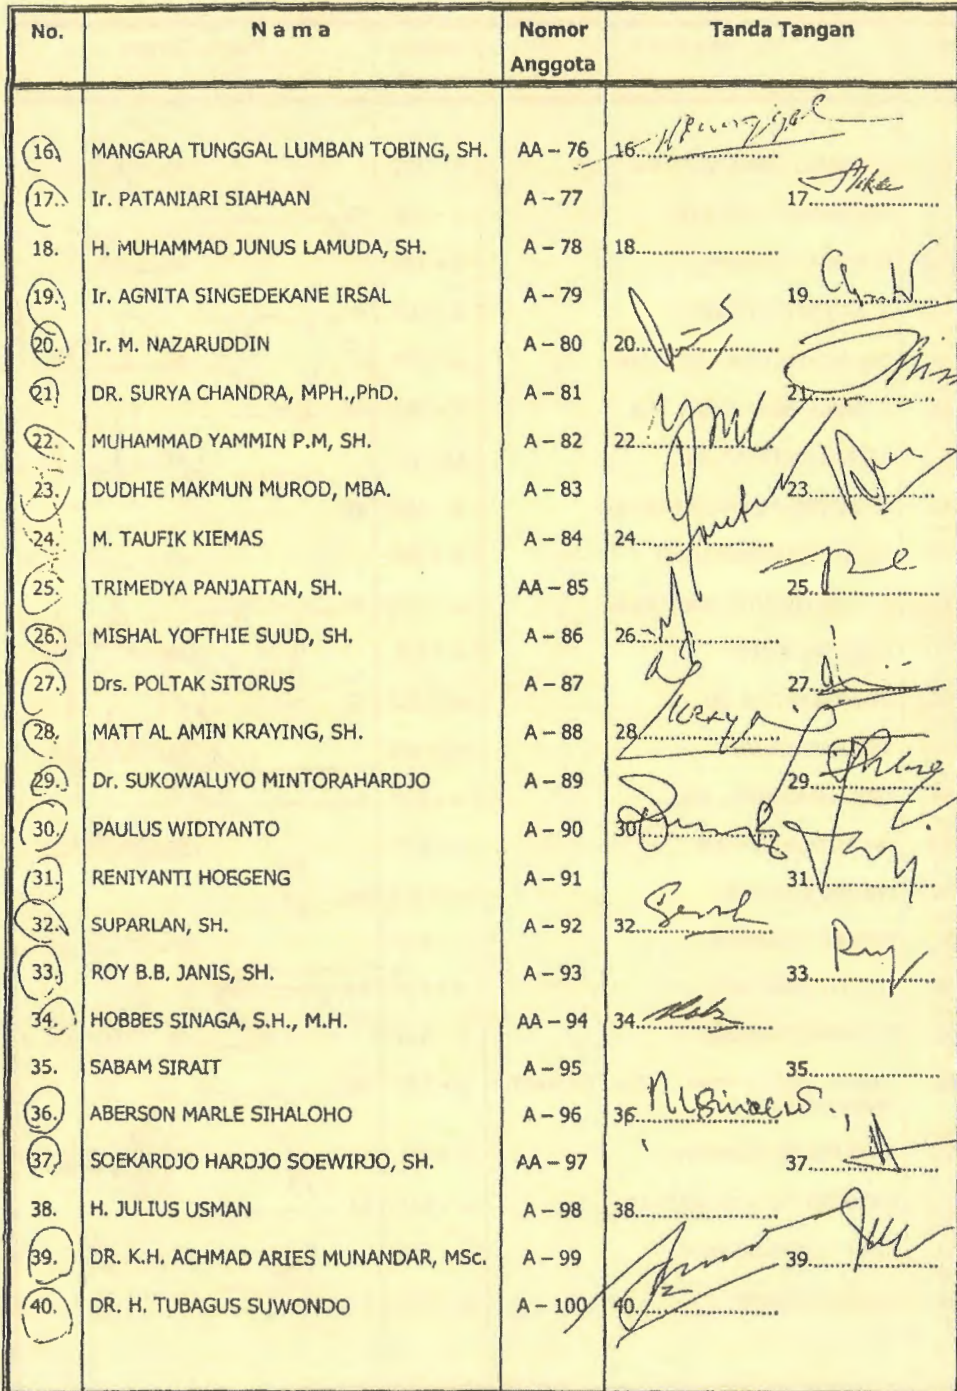 No. N a m a Nomor Anggota Tanda Tangan
16. MANGARA TUNGGAL LUMBAN TOBING, SH. AA – 76 16....................
17. Ir. PATANIARI SIAHAAN A – 77 17....................
18. H. MUHAMMAD JUNUS LAMUDA, SH. A – 78 18....................
19. Ir. AGNITA SINGEDEKANE IRSAL A – 79 19....................
20. Ir. M. NAZARUDDIN A – 80 20....................
21. DR. SURYA CHANDRA, MPH.,PhD. A – 81 21....................
22. MUHAMMAD YAMMIN P.M, SH. A – 82 22....................
23. DUDHIE MAKMUN MUROD, MBA. A – 83 23....................
24. M. TAUFIK KIEMAS A – 84 24....................
25. TRIMEDYA PANJAITAN, SH. AA – 85 25....................
26. MISHAL YOFTHIE SUUD, SH. A – 86 26....................
27. Drs. POLTAK SITORUS A – 87 27....................
28. MATT AL AMIN KRAYING, SH. A – 88 28....................
29. Dr. SUKOWALUYO MINTORAHARDJO A – 89 29....................
30. PAULUS WIDIYANTO A – 90 30....................
31. RENIYANTI HOEGENG A – 91 31....................
32. SUPARLAN, SH. A – 92 32....................
33. ROY B.B. JANIS, SH. A – 93 33....................
34. HOBBES SINAGA, S.H., M.H. AA – 94 34....................
35. SABAM SIRAIT A – 95 35....................
36. ABERSON MARLE SIHALOHO A – 96 36....................
37. SOEKARDJO HARDJO SOEWIRJO, SH. AA – 97 37....................
38. H. JULIUS USMAN A – 98 38....................
39. DR. K.H. ACHMAD ARIES MUNANDAR, MSc. A – 99 39....................
40. DR. H. TUBAGUS SUWONDO A – 100 40....................